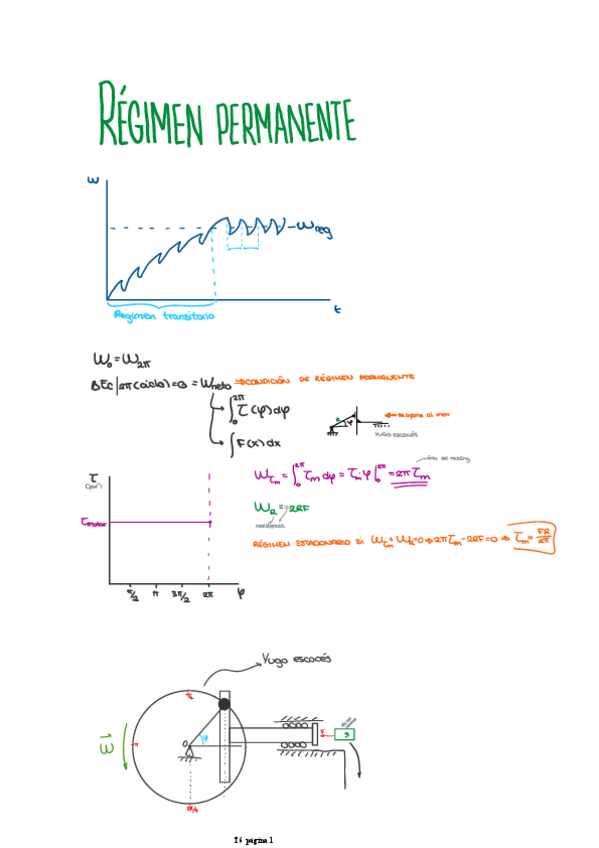 RÉGIMEN PERMANENTE
ω
ωreg
t
Regimen transitorio
ω₀ = ω₂π
ΔEc|2π(ciclo) = 0 = Wneto ⇒ CONDICIÓN DE RÉGIMEN PERMANENTE
∫₀²π τ(φ)dφ
∫F(x)dx
R
φ
se opone al mov
YUGO ESCOCÉS
τ
τmotor
π/2 π 3π/2 2π φ
Wτm = ∫₀²π τm dφ = τm·φ|₀²π = 2πτm
WR = -2RF
resistencia
RÉGIMEN ESTACIONARIO SI Wτm + WR = 0 ⇒ 2πτm - 2RF = 0 ⇒ τm = FR/π
Yugo escocés
O
φ
π
F
S
T6 página 1